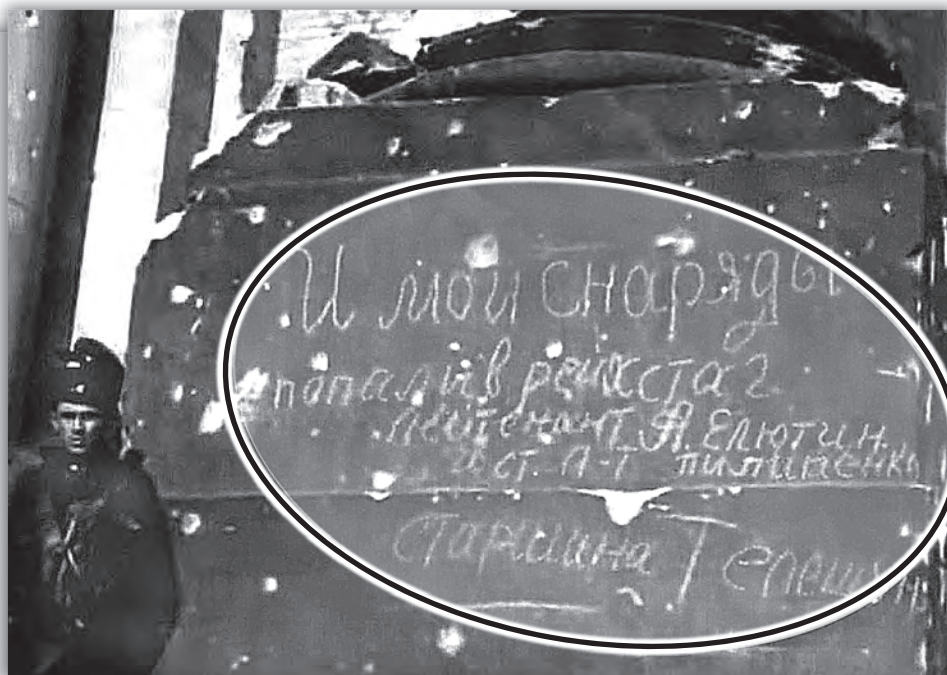 И мои снаряды
попали в рейхстаг
лейтенант А. Елютин.
и ст. л-т пилипенко
старшина Телешун